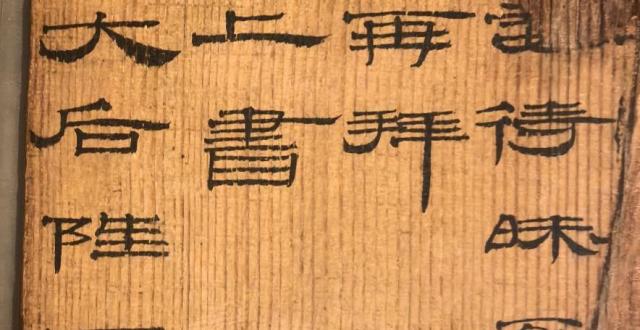 待昧
再拜
上書
大后陛